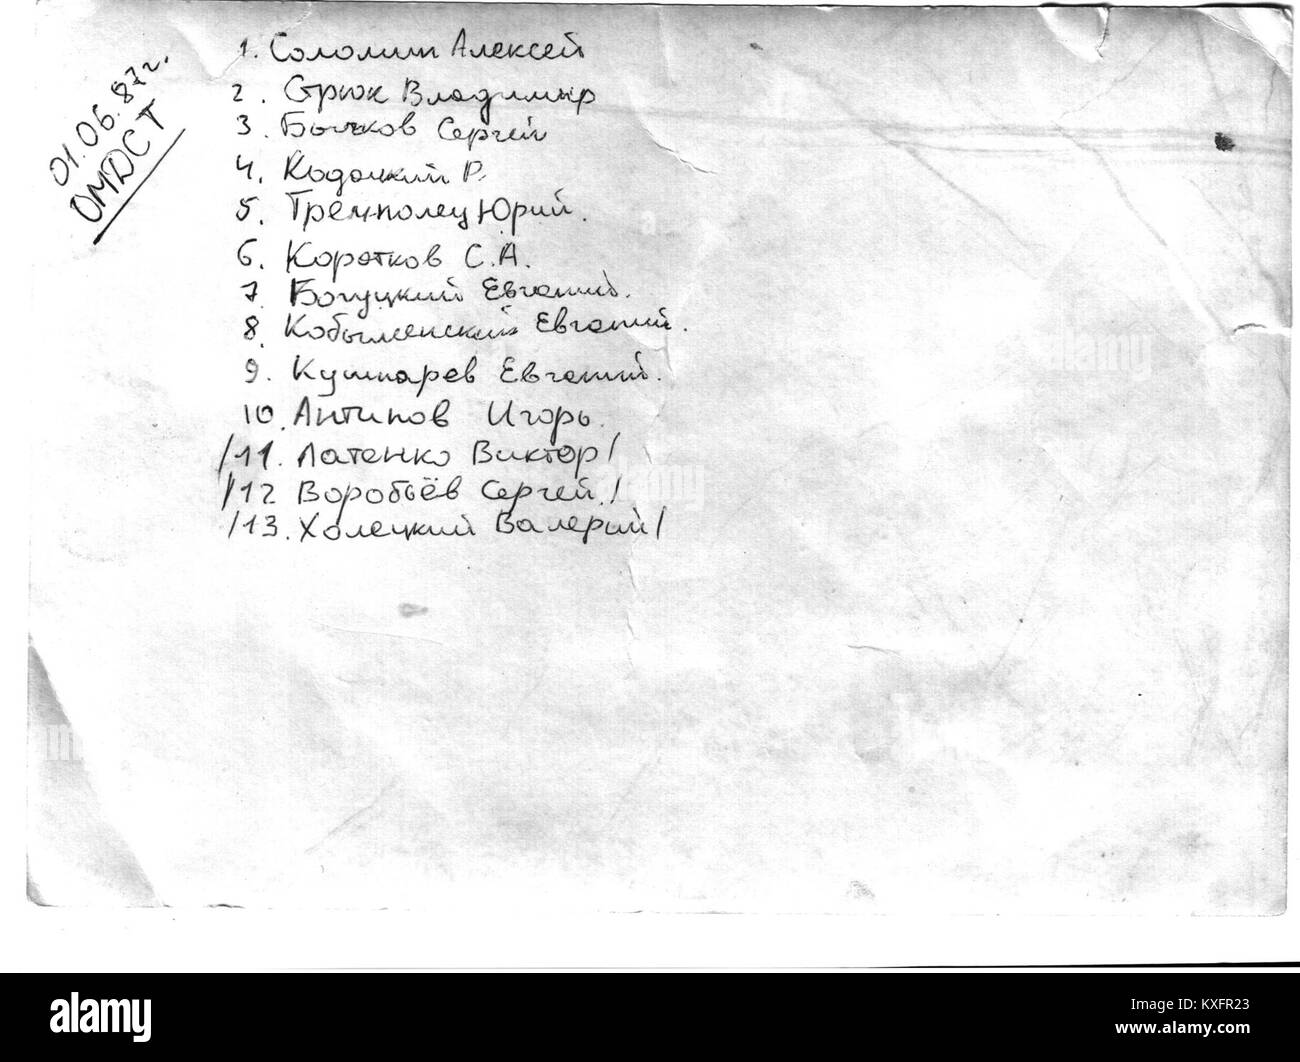 01.06.87г.
ОМДСТ
1. Соломин Алексей
2. Стрюк Владимир
3. Бычков Сергей
4. Кодацкий Р.
5. Тремполец Юрий.
6. Коротков С.А.
7. Богуцкий Евгений.
8. Кобыленский Евгений.
9. Кушнарев Евгений.
10. Антипов Игорь.
/11. Латенко Виктор/
/12. Воробьёв Сергей./
/13. Холецкий Валерий/
alamy
Image ID: KXFR23
www.alamy.com